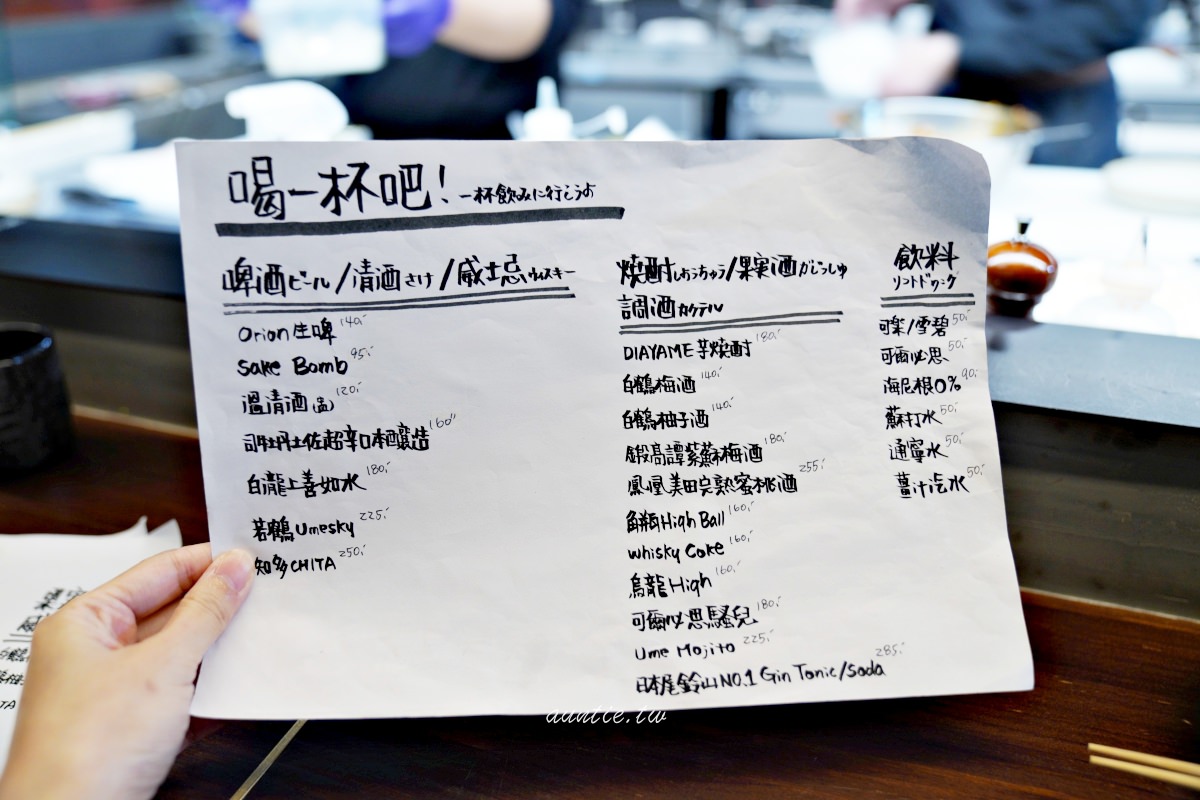 喝一杯吧! 一杯飲みに行こうよ
啤酒ビール/清酒さけ/威士忌ウィスキー
Orion生啤 140.-
Sake Bomb 95.-
溫清酒(壺) 120.-
司牡丹土佐超辛口本釀造 160"
白瀧上善如水 180.-
若鶴Umesky 225.-
知多CHITA 250.-
焼酎しょうちゅう/果実酒かじっしゅ
調酒カクテル
DIAYAME芋燒酎 180.-
白鶴梅酒 140.-
白鶴柚子酒 140.-
鍛高譚紫蘇梅酒 180.-
鳳凰美田完熟蜜桃酒 255.-
角瓶High Ball 160.-
whisky Coke 160.-
烏龍High 160.-
可爾必思騷兒 180.-
Ume Mojito 225.-
日本尾鈴山NO.1 Gin Tonic/Soda 285.-
飲料
ソフトドリンク
可樂/雪碧 50.-
可爾必思 50.-
海尼根0% 90.-
蘇打水 50.-
通寧水 50.-
薑汁汽水 50.-
auntie.tw